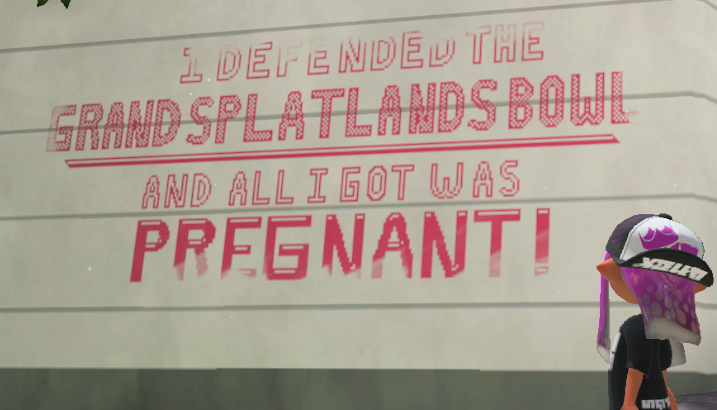 I DEFENDED THE
GRAND SPLATLANDS BOWL
AND ALL I GOT WAS
PREGNANT!